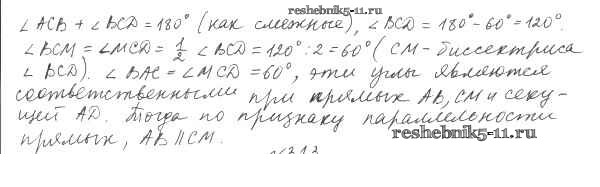 reshebnik5-11.ru
∠ACB + ∠BCD = 180° (как смежные), ∠BCD = 180° - 60° = 120°.
∠BCM = ∠MCD = 1/2 ∠BCD = 120° : 2 = 60° (CM - биссектриса
∠BCD). ∠BAC = ∠MCD = 60°, эти углы являются
соответственными при прямых AB, CM и секу-
щей AD. Тогда по признаку параллельности
reshebnik5-11.ru
прямых, AB ∥ CM.